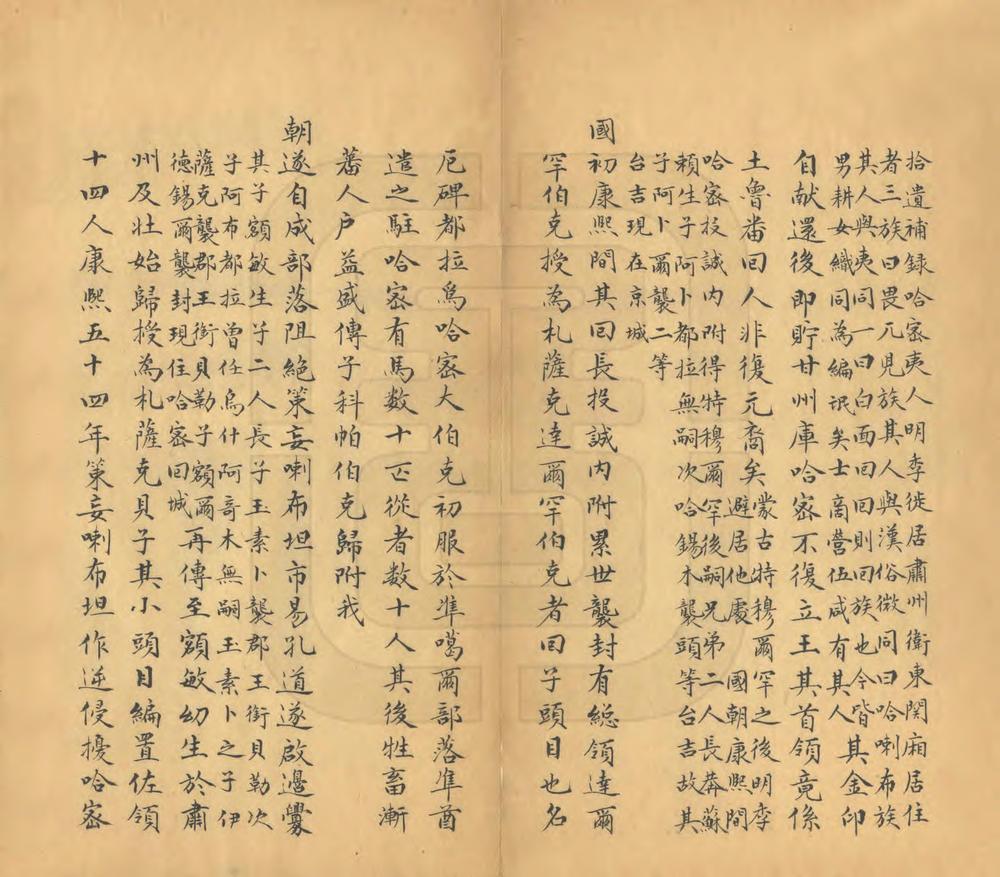 拾遺補録哈宻夷人明季徙居肅州衛東関廂居住
者三族曰畏兀兒族其人與漢俗微同曰哈喇布族
其人與夷同一曰白面回回則回族也今皆
男耕女織同為編氓矣士商營伍咸有其人
其金印
自献還後即貯甘州庫哈宻不復立王其首領竟係
土魯番回人非復元裔矣
蒙古特穆爾罕之後明季
避居他處 國朝康熙間
哈宻投誠内附得特穆爾罕後嗣兄弟二人長莽蘇
賴生子阿卜都拉無嗣次哈錫木襲頭等台吉故其
子阿卜爾襲二等
台吉現在京城
國初康熙間其回長投誠内附累世襲封有總領達爾
罕伯克授為札薩克達爾罕伯克者回子頭目也名
厄碑都拉為哈宻大伯克初服於準噶爾部落準酋
遣之駐哈宻有馬数十匹從者数十人其後牲畜漸
蕃人户益盛傳子科帕伯克歸附我
朝遂自成部落阻絶策妄喇布坦市易孔道遂啟邊釁
其子額敏生子二人長子玉素卜襲郡王銜貝勒次
子阿布都拉曾任烏什阿奇木無嗣玉素卜之子伊
薩克襲郡王銜貝勒子額爾
德錫爾襲封現住哈宻回城
再傳至額敏幼生於肅
州及壯始歸授為札薩克貝子其小頭目編置佐領
十四人康熙五十四年策妄喇布坦作逆侵擾哈宻